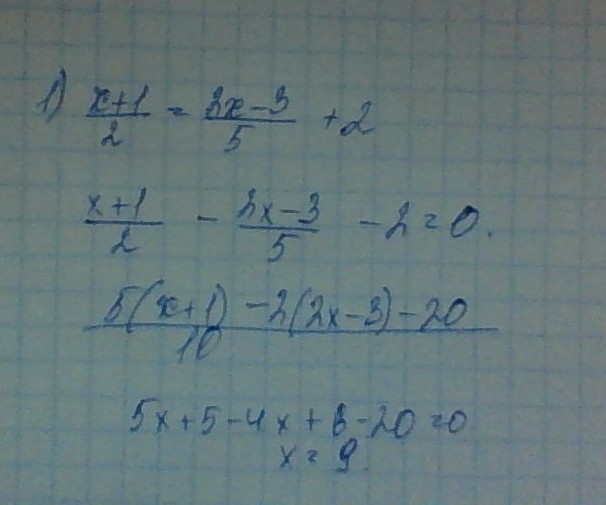 1) (x+1)/2 = (2x-3)/5 + 2
(x+1)/2 - (2x-3)/5 - 2 = 0.
(5(x+1) - 2(2x-3) - 20)/10
5x+5-4x+6-20=0
x = 9.